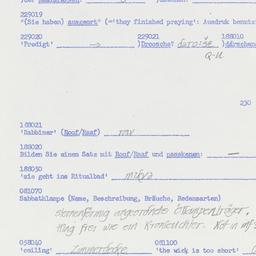 229019
"(Sie haben) ausgeort" (='they finished praying': Ausdruck benutz
229020 229021 188010
'Predigt' → )Drosche? daroše )därschen
Q-U
230
188021
'Rabbiner' (Roof/Raaf) rov
188020
Bilden Sie einen Satz mit Roof/Raaf und passkenen: —
188030
'sie geht ins Ritualbad' mikva
081070
Sabbathlampe (Name, Beschreibung, Bräuche, Redensarten)
sternenförmig angeordnete
hing frei wie ein Kronleuchter. Not in my
058040 081100
'ceiling' Zimmerdecke 'the wick is too short'